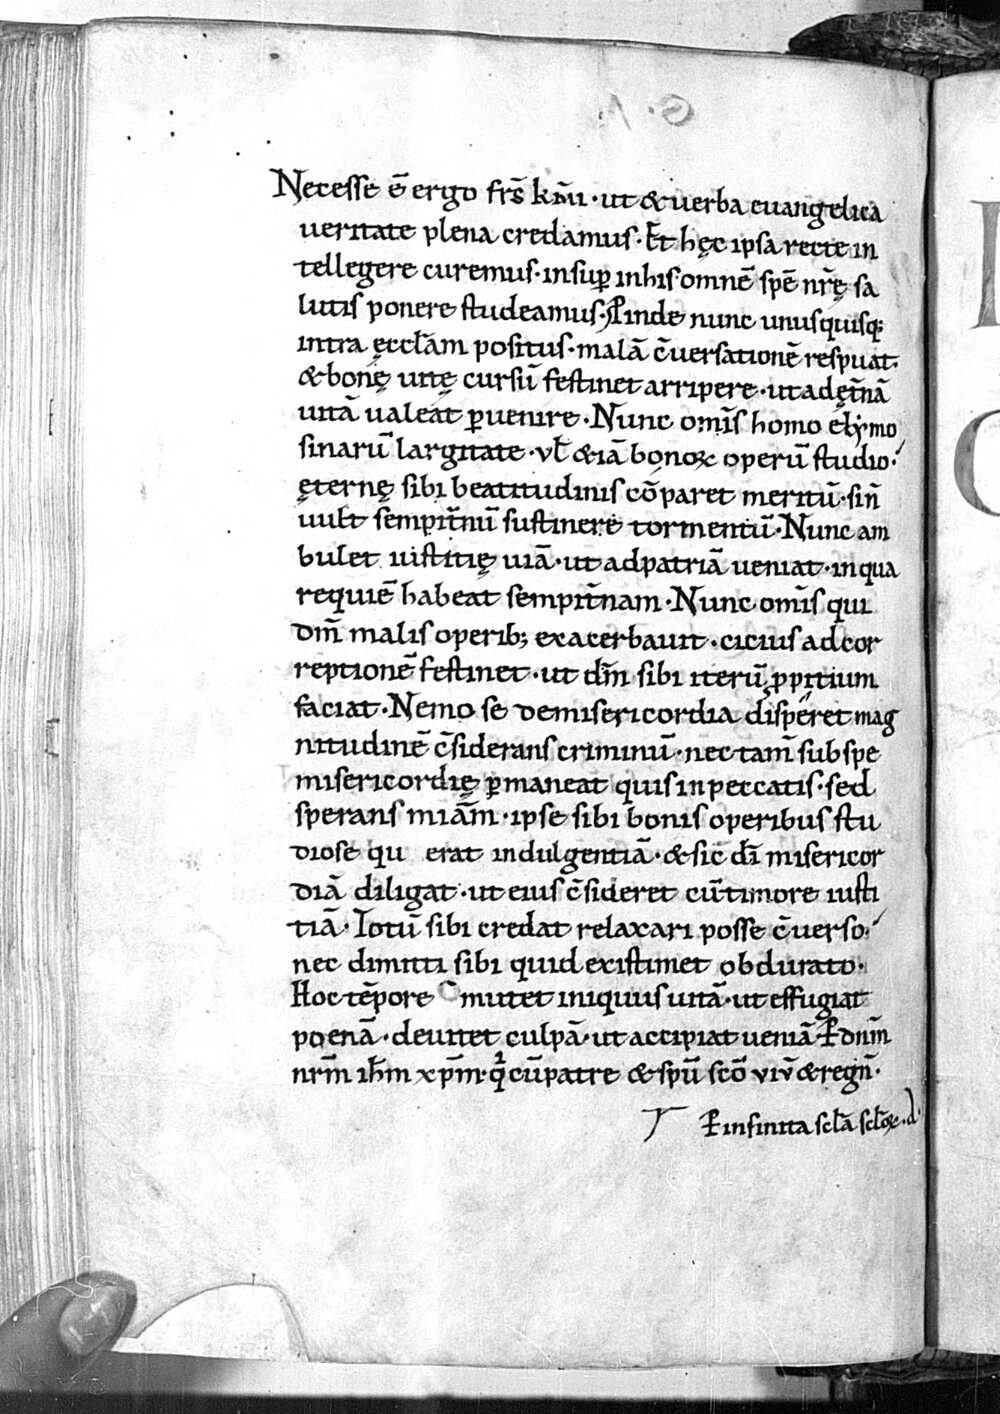 Necesse ē ergo fr̄s km̄i · ut & uerba euangelica
ueritate plena credamus · Et hęc ipsa recte in
tellegere curemus · insup̱ inhis omnē spē nr̄ę sa
lutis ponere studeamus · P̱inde nunc unusquisq;
intra ęccl̄am positus · malā c̄uersationē respuat ·
& bonę uitę cursū festinet arripere · ut adęt̄nā
uitā ualeat p̱uenire · Nunc om̄is homo elẏmo
sinarū largitate · vł &iā bonoꝝ operū studio ·
ęternę sibi beatitudinis cōparet meritū · sin̄
uult sempit̄nū sustinere tormentū · Nunc am
bulet iustitię uiā · ut adpatriā ueniat · inqua
requiē habeat sempit̄nam · Nunc om̄is qui
dm̄ malis operib; exacerbauit · cicius adcor
reptionē festinet · ut dm̄ sibi iterū ꝓpitium
faciat · Nemo se demisericordia disperet mag
nitudinē c̄siderans criminū · nec tam̄ sub spe
misericordię p̱maneat quis inpeccatis · sed
sperans miām · ipse sibi bonis operibus stu
diose qu erat indulgentiā · & sic dī misericor
diā diligat · ut eius c̄sideret cū timore iusti
tiā · Totū sibi credat relaxari posse c̄uerso ·
nec dimitti sibi quid existimet obdurato ·
Hoc tēpore mutet iniquus uitā · ut effugiat
poenā · deuitet culpā · ut accipiat ueniā P̱ dnm̄
nrm̄ ihm̄ xpm̄ · q̇ cūpatre & spū scō viv̄ & regn̄ ·
P̱ infinita scl̄a scl̄oꝝ ·